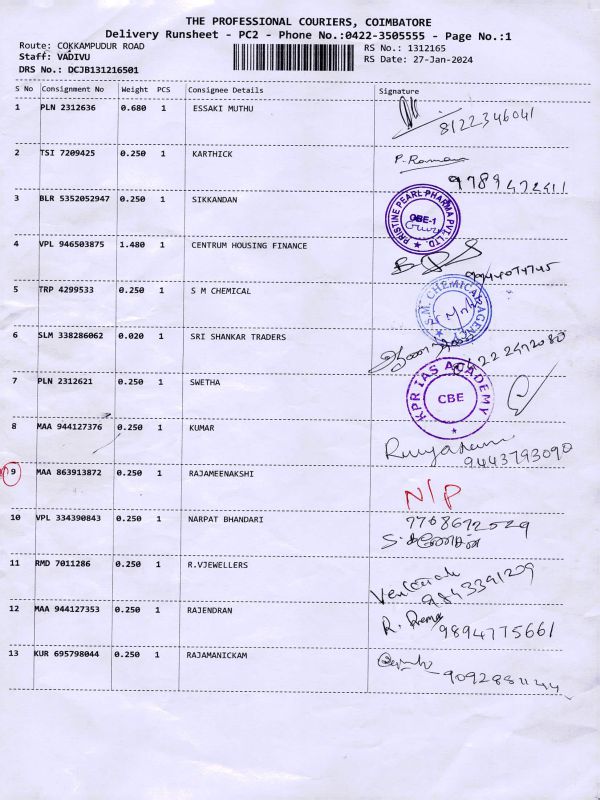 THE PROFESSIONAL COURIERS, COIMBATORE
Delivery Runsheet - PC2 - Phone No.:0422-3505555 - Page No.:1
Route: COKKAMPUDUR ROAD RS No.: 1312165
Staff: VADIVU RS Date: 27-Jan-2024
DRS No.: DCJB131216501
S No Consignment No Weight PCS Consignee Details Signature
1 PLN 2312636 0.680 1 ESSAKI MUTHU
8122346041
2 TSI 7209425 0.250 1 KARTHICK P. Raman
3 BLR 5352052947 0.250 1 SIKKANDAN
PRISTINE PEARL PHARMA PVT. LTD. ★
CBE-1
4 VPL 946503875 1.480 1 CENTRUM HOUSING FINANCE
5 TRP 4299533 0.250 1 S M CHEMICAL
S.M. CHEMICAL AGENCY
6 SLM 338286062 0.020 1 SRI SHANKAR TRADERS
7 PLN 2312621 0.250 1 SWETHA
KPR IAS ACADEMY ★
CBE
8 MAA 944127376 0.250 1 KUMAR
9443793090
9 MAA 863913872 0.250 1 RAJAMEENAKSHI
N/P
10 VPL 334390843 0.250 1 NARPAT BHANDARI 7708672529
11 RMD 7011286 0.250 1 R.VJEWELLERS
9843391209
12 MAA 944127353 0.250 1 RAJENDRAN R. Rema
9894775661
13 KUR 695798044 0.250 1 RAJAMANICKAM